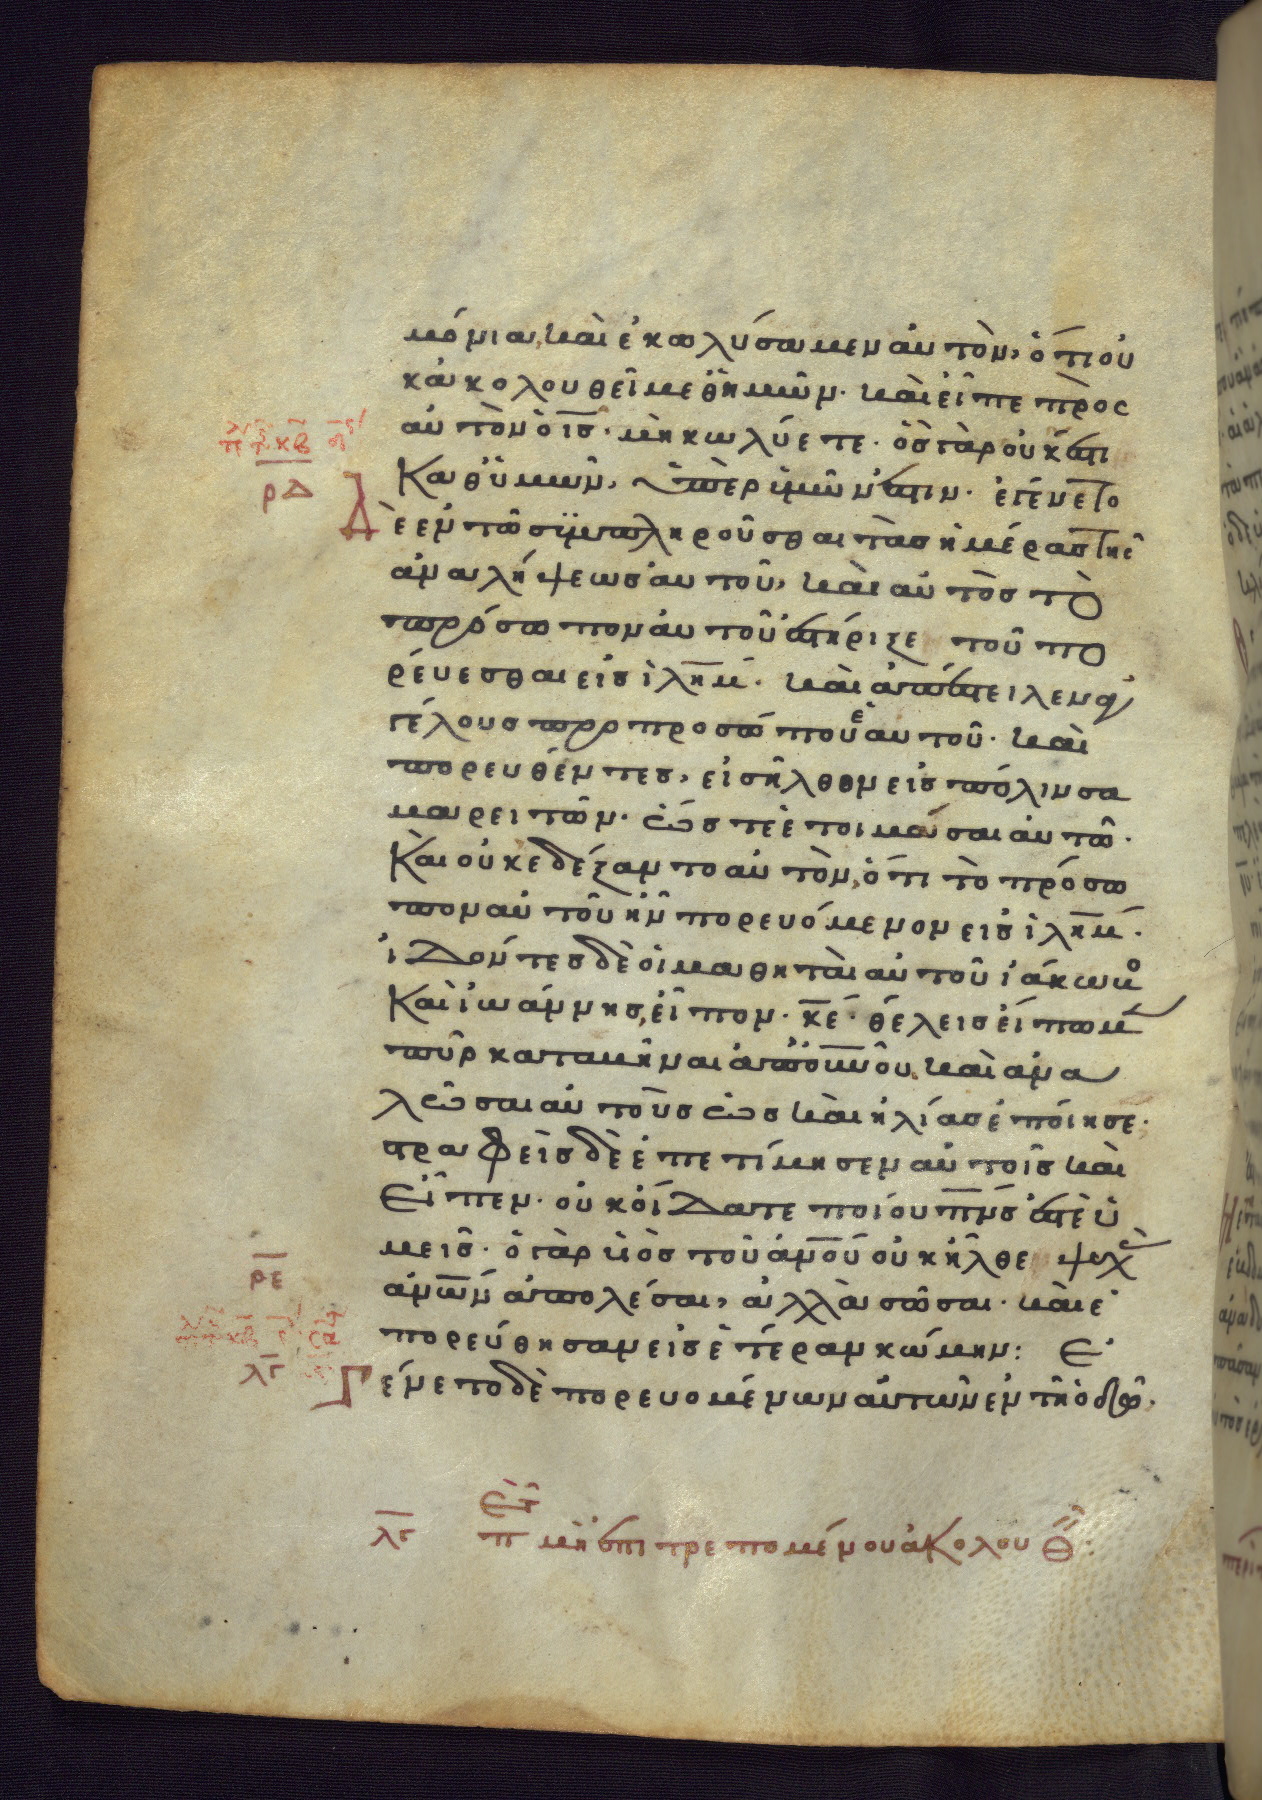 μόνια, καὶ ἐκωλύσαμεν αὐτὸν, ὅτι οὐ
κ ἀκολουθεῖ μεθ ἡμῶν. καὶ εἶπε πρὸς
αὐτὸν ὁ ις. μὴ κωλύετε. ὃς γὰρ οὐκ ἔστι
καθ ὑμῶν, ὑπὲρ ὑμῶν ἐστιν. ἐγένετο
ρδ
δὲ ἐν τῶ συμπληροῦσθαι τὰς ἡμέρας τῆς
ἀναλήψεως αὐτοῦ, καὶ αὐτὸς τὸ
πρόσωπον αὐτοῦ ἐστήριξε τοῦ πο
ρεύεσθαι εἰς ιλημ. καὶ ἀπέστειλεν ἀγ
γέλους πρὸ προσώπου ἑαυτοῦ. καὶ
πορευθέντες, εἰσῆλθον εἰς πόλιν σα
μαρειτῶν. ὥστε ἑτοιμάσαι αὐτῶ.
Καὶ οὐκ ἐδέξαντο αὐτὸν, ὅτι τὸ πρόσω
πον αὐτοῦ ἦν πορευόμενον εἰς ιλημ.
ἰδόντες δὲ οἱ μαθηταὶ αὐτοῦ ἰάκωβο
Καὶ ἰωάννης, εἶπον. κε. θέλεις εἴπωμεν
πῦρ καταβῆναι ἀπὸ οὐνοῦ, καὶ ἀνα
λῶσαι αὐτοὺς ὡς καὶ ἠλίας ἐποίησε.
στραφεὶς δὲ ἐπετίμησεν αὐτοῖς καὶ
εἶπεν. οὐκ οἴδατε ποίου πνς ἐστὲ ὑ
μεῖς. ὁ γὰρ υἱὸς τοῦ ἀνου οὐκ ἦλθε ψυχὰς
ρε
ἀνων ἀπολέσαι, ἀλλὰ σῶσαι. καὶ ἐ
πορεύθησαν εἰς ἑτέραν κώμην: Ἐ
λγ
γένετο δὲ πορευομένων αὐτῶν ἐν τῆ ὁδῶ.
λγ π μὴ ἐπιτρεπομένου ἀκολουθ